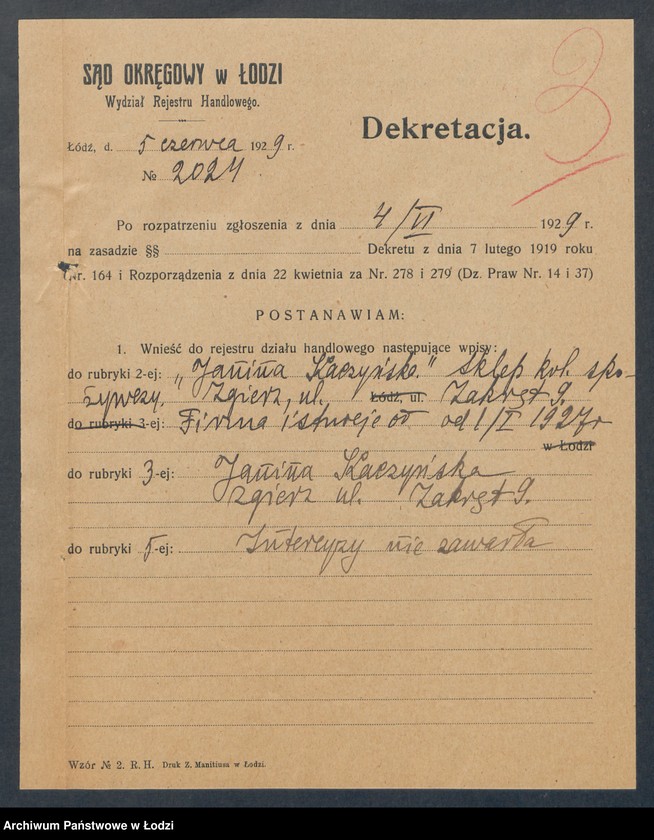 SĄD OKRĘGOWY w ŁODZI
Wydział Rejestru Handlowego.
3
Dekretacja.
Łódź, d. 5 czerwca 1929 r.
№ 2024
Po rozpatrzeniu zgłoszenia z dnia 4/VI 1929 r.
na zasadzie §§ Dekretu z dnia 7 lutego 1919 roku
(Nr. 164 i Rozporządzenia z dnia 22 kwietnia za Nr. 278 i 279 (Dz. Praw Nr. 14 i 37)
POSTANAWIAM:
1. Wnieść do rejestru działu handlowego następujące wpisy:
do rubryki 2-ej: „Janina Kaczyńska" sklep kol. spo-
żywczy. Zgierz, ul. Łódź, ul. Zakręt 9.
do rubryki 3-ej: Firma istnieje od od 1/I 1927 r
w Łodzi
do rubryki 3-ej: Janina Kaczyńska
Zgierz ul. Zakręt 9.
do rubryki 5-ej: Intercyzy nie zawarła
Wzór № 2. R. H. Druk Z. Manitiusa w Łodzi.
Archiwum Państwowe w Łodzi